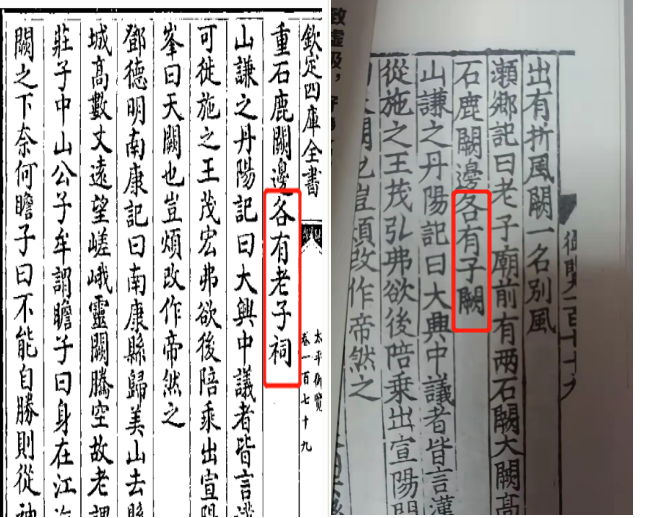 欽定四庫全書
太平御覽
卷一百七十九
重石鹿闕邊各有老子祠
山謙之丹陽記曰大興中議者皆言
可徙施之王茂宏弗欲後陪乘出宣陽
峯曰天闕也豈煩改作帝然之
鄧德明南康記曰南康縣歸美山去縣
城高數丈遠望嵯峨靈闕騰空故老謂
莊子中山公子牟謂瞻子曰身在江海
闕之下奈何瞻子曰不能自勝則從神
出有折風闕一名別風
瀨鄉記曰老子廟前有兩石闕大闕高
石鹿闕邊各有子闕
山謙之丹陽記曰大興中議者皆言漢
從施之王茂弘弗欲後陪乘出宣陽門
闕也豈煩改作帝然之
致虛極，